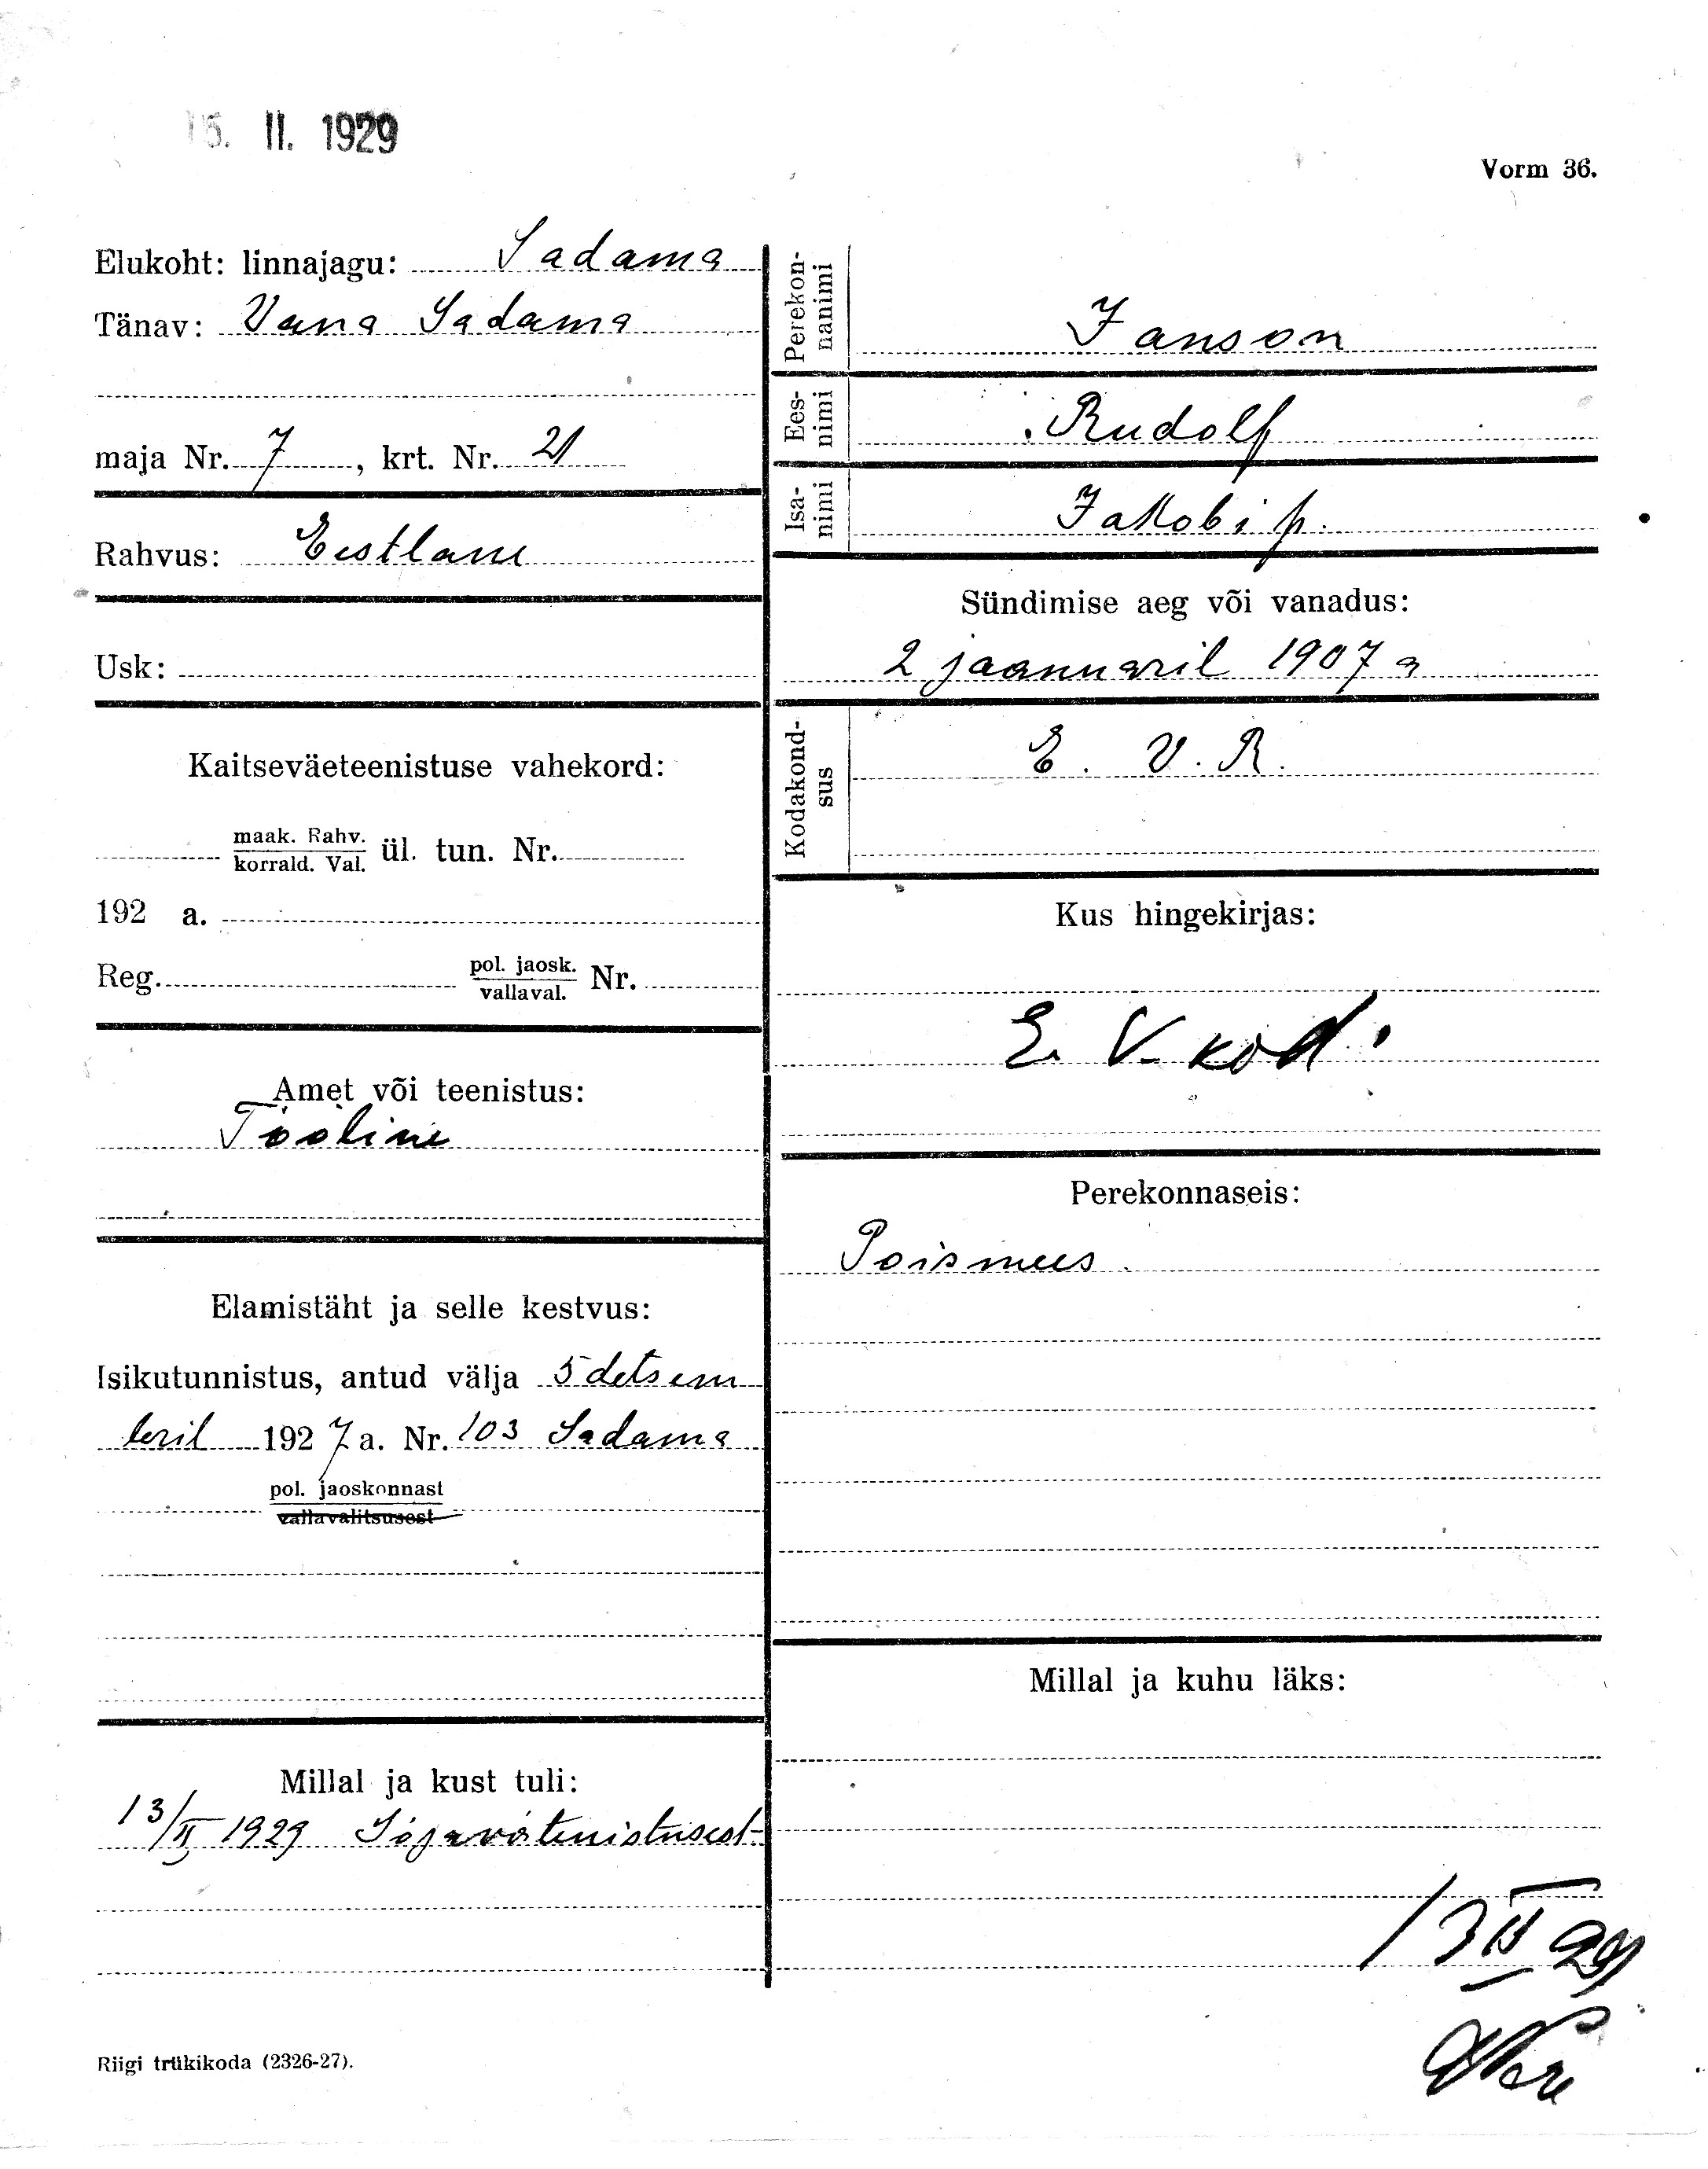 15. II. 1929
Vorm 36.
Elukoht: linnajagu: Sadama
Tänav: Vana Sadama
maja Nr. 7, krt. Nr. 21
Rahvus: Eestlane
Usk:
Kaitseväeteenistuse vahekord:
maak. Rahv.
korrald. Val. ül. tun. Nr.
192 a.
Reg. pol. jaosk.
vallaval. Nr.
Amet või teenistus:
Tööline
Elamistäht ja selle kestvus:
Isikutunnistus, antud välja 5 detsem
bril 1927 a. Nr. 103 Sadama
pol. jaoskonnast
vallavalitsusest
Millal ja kust tuli:
13/II 1929 Sõjaväeteenistusest
Perekon-
nanimi
Janson
Ees-
nimi
Rudolf
Isa-
nimi
Jakobi p.
Sündimise aeg või vanadus:
2 jaanuaril 1907 a
Kodakond-
sus
E. V. R.
Kus hingekirjas:
E. V. kod.
Perekonnaseis:
Poismees
Millal ja kuhu läks:
13 II 29
Riigi trükikoda (2326-27).